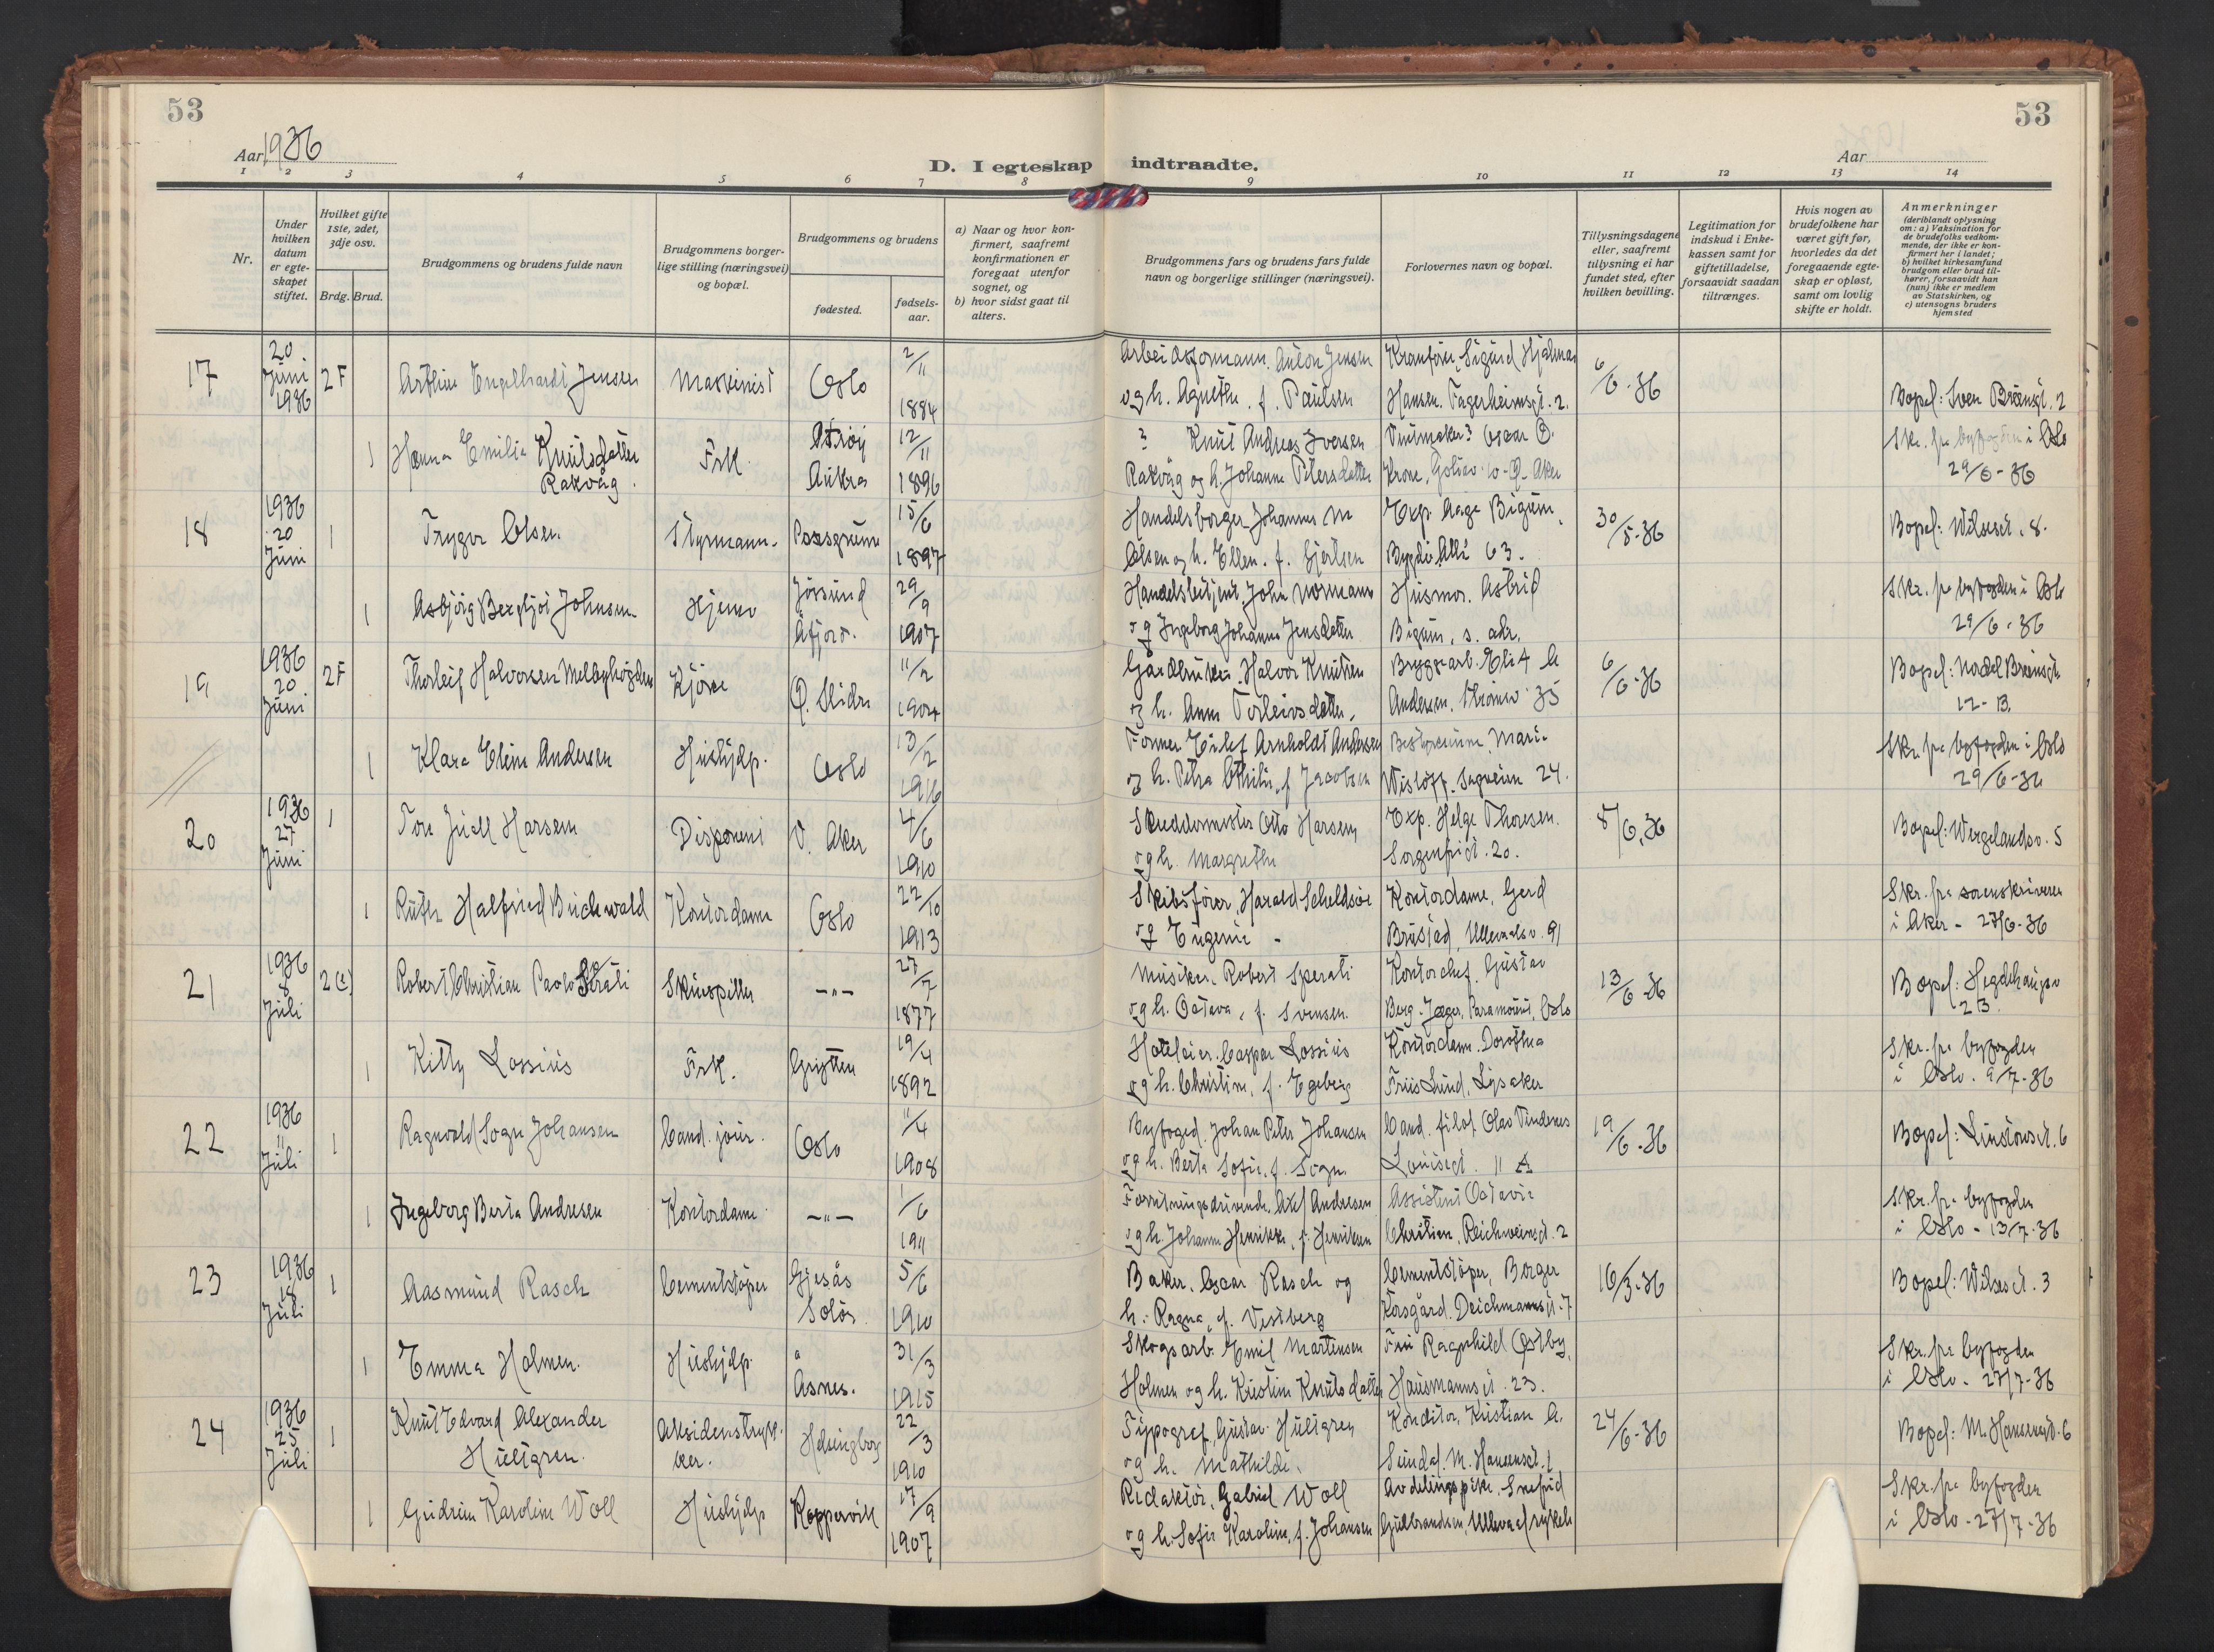 53
53
Aar 1936
D. I egteskap indtraadte.
Aar
1 2 3 4 5 6 7 8 9 10 11 12 13 14
Nr.
Under
hvilken
datum
er egte-
skapet
stiftet.
Hvilket gifte
1ste, 2det,
3dje osv.
Brdg. Brud.
Brudgommens og brudens fulde navn
Brudgommens borger-
lige stilling (næringsvei)
og bopæl.
Brudgommens og brudens
fødested.
fødsels-
aar.
a) Naar og hvor kon-
firmert, saafremt
konfirmationen er
foregaat utenfor
sognet, og
b) hvor sidst gaat til
alters.
Brudgommens fars og brudens fars fulde
navn og borgerlige stillinger (næringsvei).
Forlovernes navn og bopæl.
Tillysningsdagene
eller, saafremt
tillysning ei har
fundet sted, efter
hvilken bevilling.
Legitimation for
indskud i Enke-
kassen samt for
giftetilladelse,
forsaavidt saadan
tiltrænges.
Hvis nogen av
brudefolkene har
været gift før,
hvorledes da det
foregaaende egte-
skap er opløst,
samt om lovlig
skifte er holdt.
Anmerkninger
(deriblandt oplysning
om: a) Vaksination for
de brudefolks vedkom-
mende, der ikke er kon-
firmert her i landet;
b) hvilket kirkesamfund
brudgom eller brud til-
hører, forsaavidt han
(hun) ikke er medlem
av Statskirken, og
c) utensogns bruders
hjemsted
17
20
Juni
1936
2F
Engelhardt Jensen
Maskinist
Oslo
2/11
1884
Anton Jensen
og h. Agnethe. f. Paulsen
Sigurd Hjalmar
Hansen. Fagerheimsgt. 2.
6/6-36
Bopel: Sven Bruunsgt. 2
1
Hanna Emilie Knutsdatter
Rakvåg.
Frk.
Aukra
12/11
1896
? Knut Andreas Iversen
Rakvåg og h. Johanne Petersdatter
Skr. fra byfogden i Oslo
29/6-36
18
1936
20
Juni
1
Trygve Olsen.
Styrmann.
Porsgrunn
15/6
1897
Johannes M
Olsen og h. Ellen. f. Gjertsen
Exp. Aage Bigum,
Bygdø Allé 63.
30/5-36
Bopel: Wilsesgt. 8.
1
Asbjørg Bergljot Johnsen
Jøssund
Åfjord.
29/9
1907
Handelsbetjent, John Normann
og Ingeborg Johanna Jensdatter
Husmor. Astrid
Bigum, s. adr.
Skr. fra byfogden i Oslo
29/6-36
19
1936
20
Juni
2F
Thorleif Halvorsen Melbyhøgden
Ø. Slidre
11/2
1904
Gårdbruker. Halvor Knutsen
og h. Anne Torleivsdatter.
6/6-36
12-B.
1
Klara Eline Andersen
Hushjelp.
Oslo
13/2
1916
Former Arnholdt Andersen
og h. Petra f. Jacobsen
Bestyrerinne, Marie
Wisløff. Sagveien 24.
Skr. fra byfogden i Oslo
29/6-36
20
1936
27
Juni
1
Tore Juell Harsem
Disponent
V. Aker
4/6
1910
Skreddermester Otto Harsem
og h. Margrethe
Exp. Helge Thoresen.
Sorgenfrigt. 20.
5/6.36
Bopel: Wergelandsv. 5
1
Ruth Halfried Buchwald
Kontordame
Oslo
22/10
1913
Skibsfører, Harald
og Eugenie -
Kontordame, Gerd
Brusjed, Ullevaalsv. 91
Skr. fra sorenskriveren
i Aker - 27/6-36
21
1936
8
Juli
Robert Christian Paolo Sperati
Skuespiller
-"-
27/7
1877
Musiker. Robert Sperati
og h. Octava, f. Svensen.
Kontorchef. Gustav
Berg-Jæger, Paramount, Oslo
13/6-36
Bopel: Hegdehaugsv
2B.
1
Kitty Lossius
Frk.
Grytten
19/4
1892
Caspar Lossius
og h. Christine, f. Egeberg
Kontordame. Dorothea
Friis Lund, Lysaker
Skr. fra byfogden
i Oslo. 9/7-36
22
1936
11
Juli
1
Ragnvald Sogn Johansen
Cand. jour.
Oslo
11/4
1908
Byfoged. Johan Peter Johansen
og h. Berta Sofie. f. Sogn.
Cand. filol. Olav
Louisesgt. 11 A
19/6-36
Bopel: Linstowsgt. 6
1
Ingeborg Berta Andresen
Kontordame
-"-
1/6
1911
Forretningsdrivende, Axel Andresen
og h. Johanne Henrikke, f. Henriksen
Assistent Octavie
Christian, Reichweinsgt. 2
Skr. fra byfogden
i Oslo - 13/7-36
23
1936
18
Juli
1
Aasmund Rasch
Cementstøper
Gjesås
Solør
5/6
1910
Baker. Oscar Rasch og
h. Ragna, f. Vestberg
Cementstøper, Borger
Korsgård. Deichmannsgt. 7
16/3-36
Bopel: Wilsesgt. 3
1
Emma Holmen.
Hushjelp.
Åsnes.
31/3
1915
Skogsarb. Emil Martinsen
Holmen og h. Kristine Knutsdatter
Fru Ragnhild Østby,
Hausmannsgt. 23.
Skr. fra byfogden
i Oslo - 27/7-36
24
1936
25
Juli
1
Knut Edvard Alexander
Hultgren.
Aksidenstryk-
ker.
Helsingborg
22/3
1910
Typograf, Gustav Hultgren
og h. Mathilde.
Konditor, Kristian A.
24/6-36
Bopel: M. Hansensgt. 6
1
Gudrun Karoline Woll
Hushjelp
Koppervik
17/9
1907
Redaktør, Gabriel Woll
og h. Sofie Karoline, f. Johansen
Avdelingspike, Snefrid
Gulbrandsen, Ullevaal sykeh
Skr. fra byfogden
i Oslo - 27/7-36